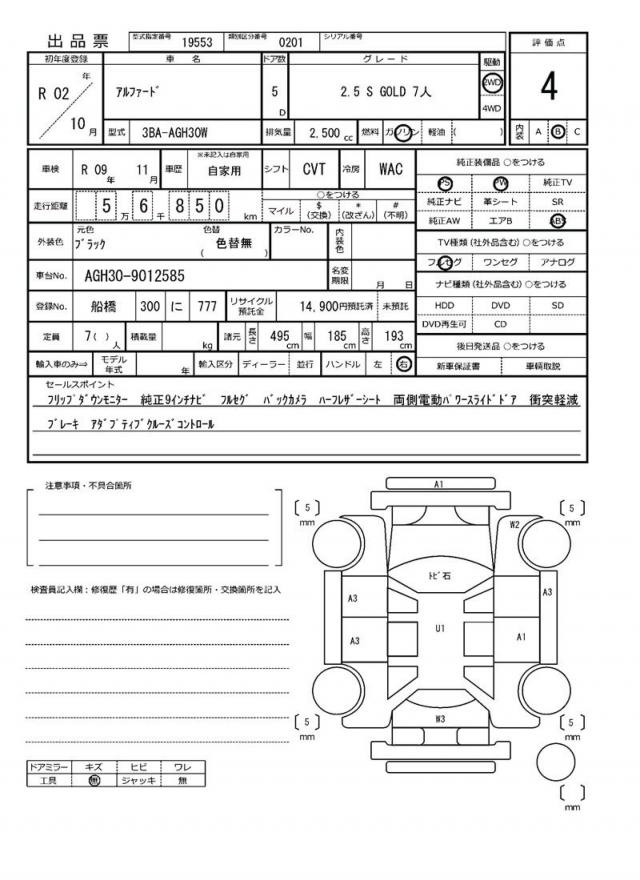 出品票 型式指定番号 19553 類別区分番号 0201 シリアル番号
初年度登録 車名 ドア数 グレード 駆動 評価点
R 02 年 10 月 ｱﾙﾌｧｰﾄﾞ 5 D 2.5 S GOLD 7人 2WD 4WD 4
型式 3BA-AGH30W 排気量 2,500 cc 燃料 ガソリン 軽油 ( ) 内装 A B C
車検 R 09 年 11 月 車歴 ※未記入は自家用 自家用 シフト CVT 冷房 WAC
純正装備品 ○をつける
PS PW 純正TV
純正ナビ 革シート SR
純正AW エアB ABS
走行距離 5 万 6 千 8 5 0 km ○をつける
マイル $ (交換) * (改ざん) # (不明)
TV種類 (社外品含む) ○をつける
フルセグ ワンセグ アナログ
外装色 元色 ﾌﾞﾗｯｸ 色替 ( 色替無 ) カラーNo. 内装色
車台No. AGH30-9012585 名変期限 月 日
ナビ種類 (社外品含む) ○をつける
HDD DVD SD
DVD再生可 CD
登録No. 船橋 300 に 777 リサイクル預託金 14,900円預託済 未預託
定員 7( ) 人 積載量 kg 諸元 長さ 495 cm 幅 185 cm 高さ 193 cm
後日発送品 ○をつける
新車保証書 車輌取説
輸入車のみ⇒ モデル年式 年 輸入区分 ディーラー 並行 ハンドル 左 右
セールスポイント
ﾌﾘｯﾌﾟﾀﾞｳﾝﾓﾆﾀｰ 純正9ｲﾝﾁﾅﾋﾞ ﾌﾙｾｸﾞ ﾊﾞｯｸｶﾒﾗ ﾊｰﾌﾚｻﾞｰｼｰﾄ 両側電動ﾊﾟﾜｰｽﾗｲﾄﾞﾄﾞｱ 衝突軽減
ﾌﾞﾚｰｷ ｱﾀﾞﾌﾟﾃｨﾌﾞｸﾙｰｽﾞｺﾝﾄﾛｰﾙ
注意事項・不具合箇所
検査員記入欄：修復歴「有」の場合は修復箇所・交換箇所を記入
A1
5 mm
5 mm
W2
ﾄﾋﾞ石
A3
A3
A3
U1
A1
W3
5 mm
5 mm
mm
ドアミラー キズ ヒビ ワレ
工具 無 ジャッキ 無